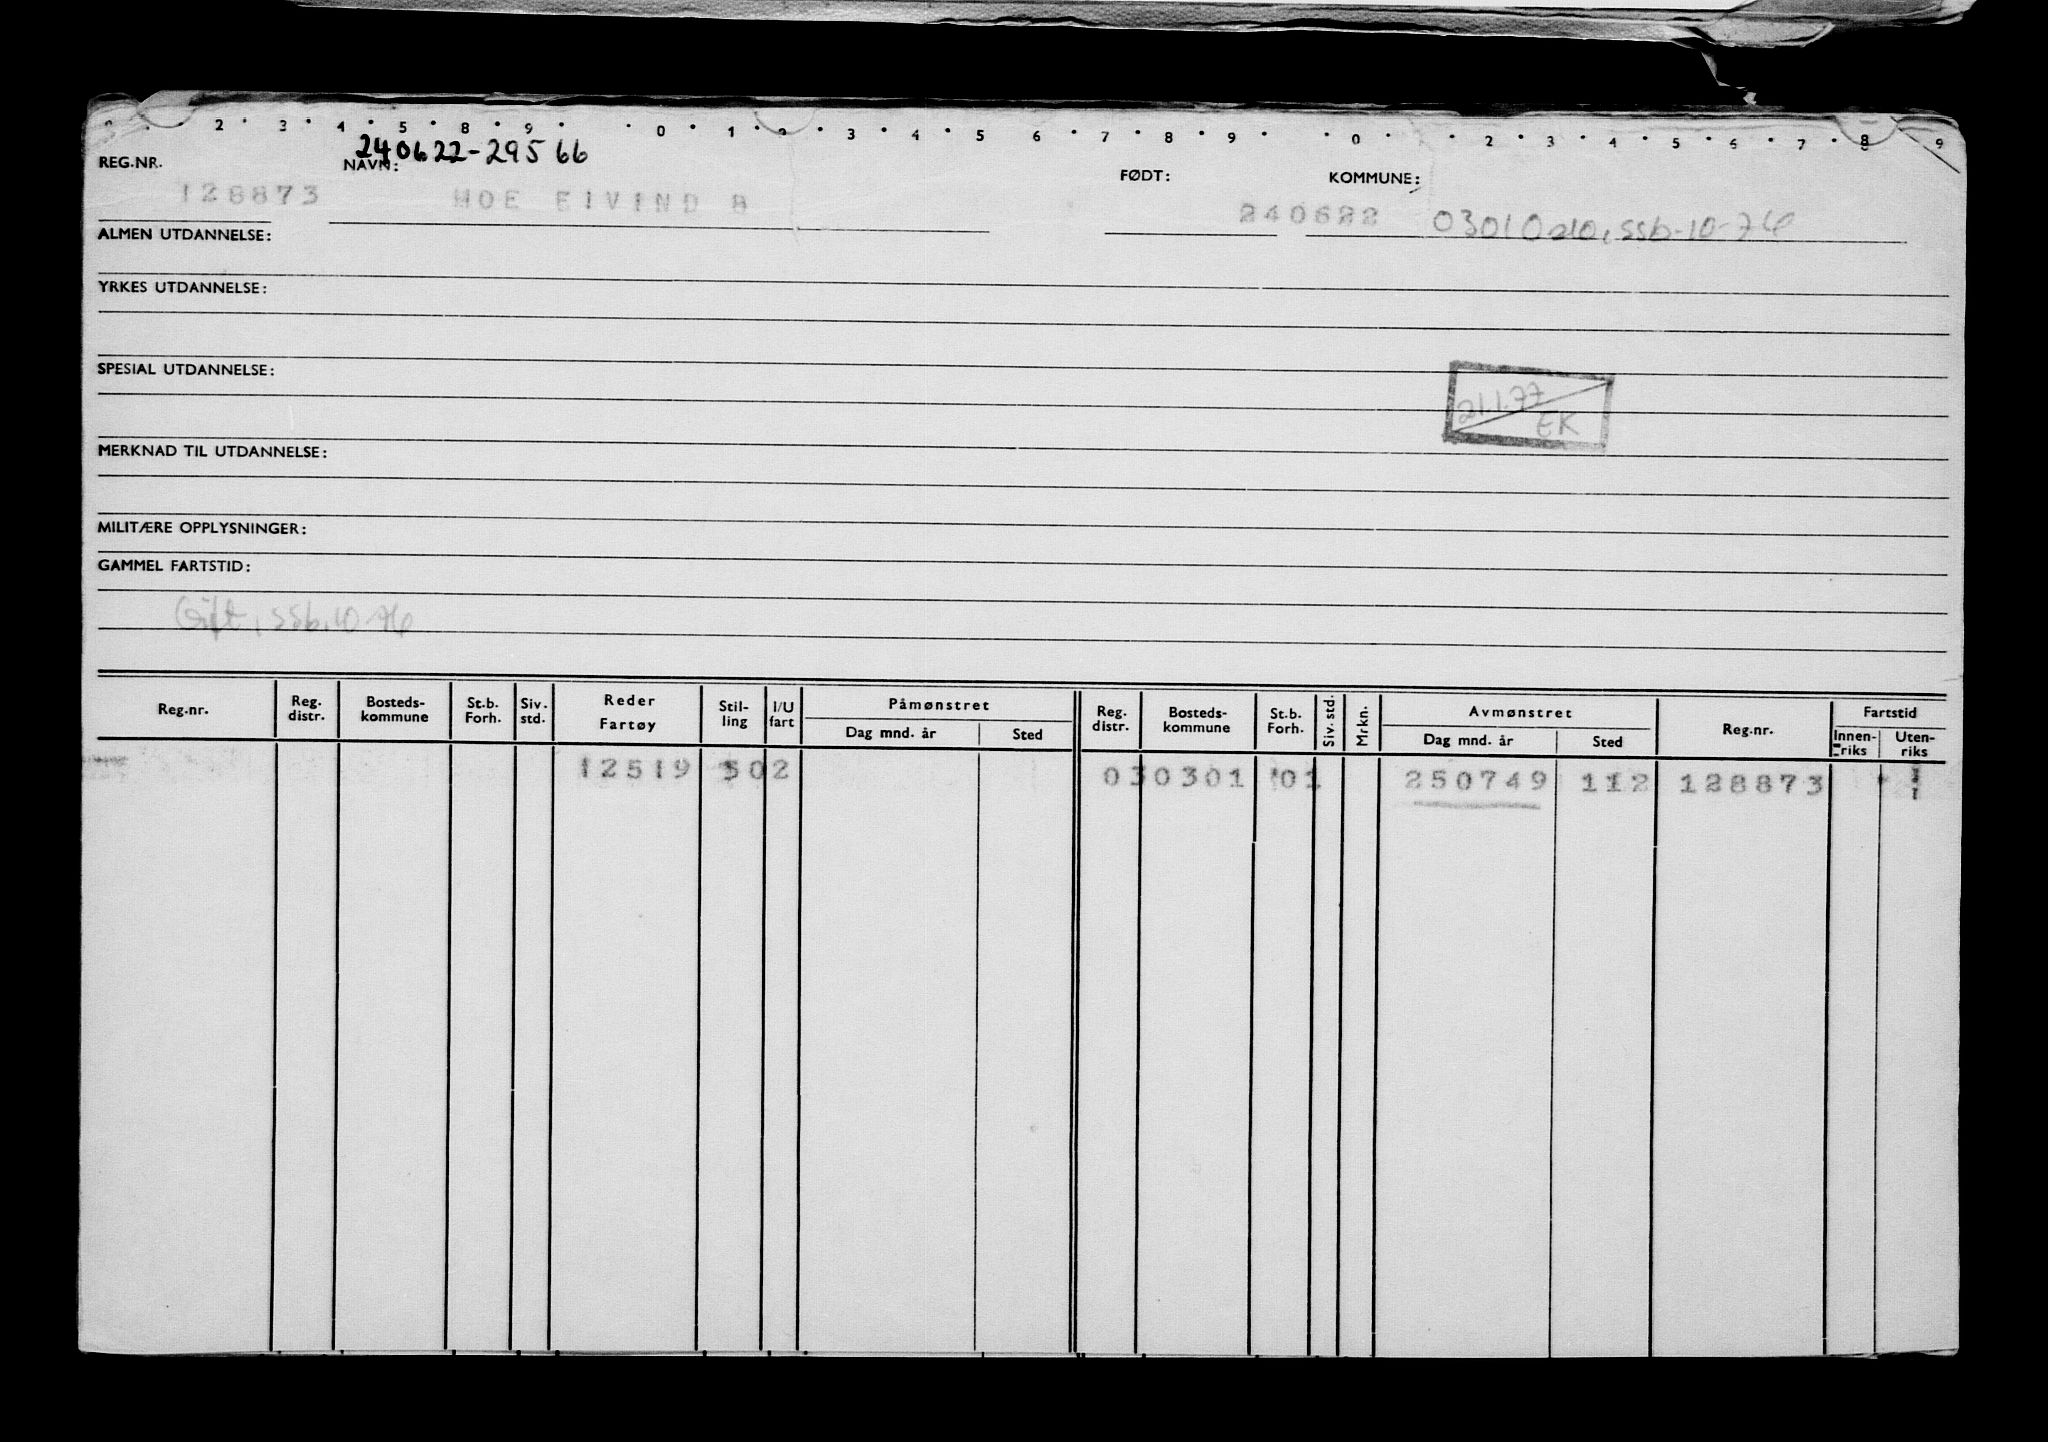 2 3 4 5 8 9 0 1 2 3 4 5 6 7 8 9 0 2 3 4 5 6 7 8 9
240622-29566
REG.NR. NAVN: FØDT: KOMMUNE:
128873 MOE EIVIND B 240622 0301 Oslo, ssb-10-76
ALMEN UTDANNELSE:
YRKES UTDANNELSE:
SPESIAL UTDANNELSE:
21.1.77
EK
MERKNAD TIL UTDANNELSE:
MILITÆRE OPPLYSNINGER:
GAMMEL FARTSTID:
Gift, ssb.10-76
Reg.nr. Reg. distr. Bosteds-kommune St.b. Forh. Siv. std. Reder Fartøy Stil-ling I/U fart Påmønstret Dag mnd. år Sted Reg. distr. Bosteds-kommune St.b. Forh. Siv. std. Mrkn. Avmønstret Dag mnd. år Sted Reg.nr. Fartstid Innen-riks Uten-riks
12519 502 030301 01 250749 112 128873